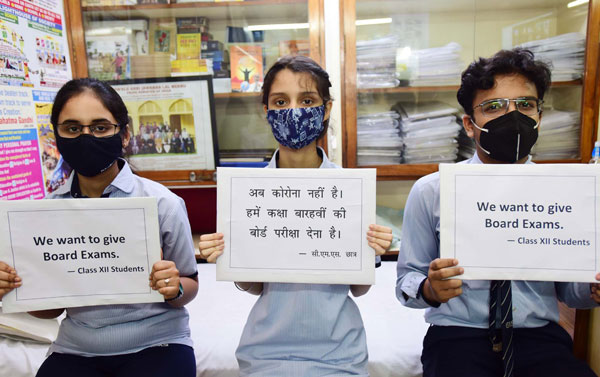 We want to give
Board Exams.
— Class XII Students
अब कोरोना नहीं है।
हमें कक्षा बारहवीं की
बोर्ड परीक्षा देना है।
— सी.एम.एस. छात्र
We want to give
Board Exams.
— Class XII Students